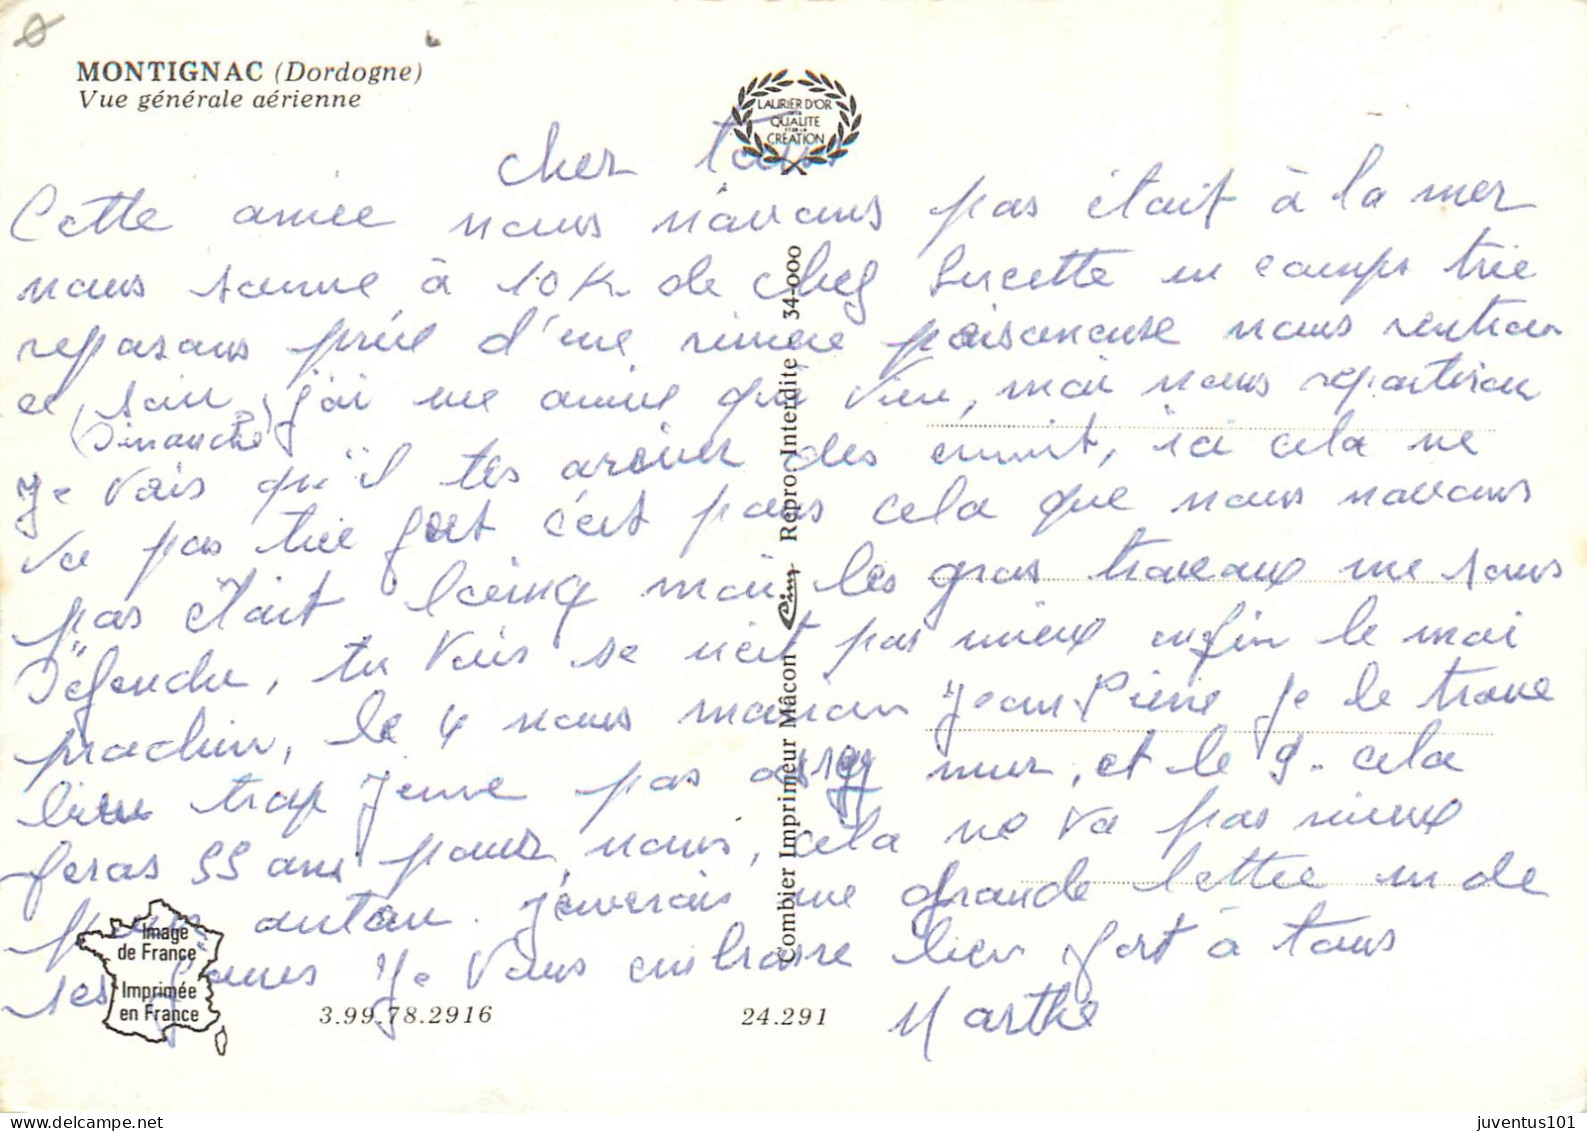 MONTIGNAC (Dordogne)
Vue générale aérienne
LAURIER D'OR
DE LA
QUALITE
ET DE LA
CREATION
cher Tous
Cette année nous n'avons pas était à la mer
nous somme à 10 K de chez Lucette un camps trie
reposans prée d'une riviere poisoneuse nous rentron
ce soir (Dimanche) j'ai une amie qui vien, mai nous repartiron
Je vais qu'il tes ariver des ennuit, ici cela ne
va pas trie fort c'est pour cela que nous navons
pas était loing mai les gros travaux me sons
défendu, tu vois se n'est pas mieux enfin le moi
prochin, le 4 nous marion Jean Pierre je le trouve
bien trop jeune pas assez mur, et le 9. cela
feras 55 ans pour nous, cela ne va pas mieux
pour autan. j'enverais une grande lettre un de
ses jours Je vous embrasse bien fort à tous
Marthe
Combier Imprimeur Mâcon Cim Repro. Interdite 34-000
Image
de France
Imprimée
en France
3.99.78.2916
24.291
delcampe.net
juventus101